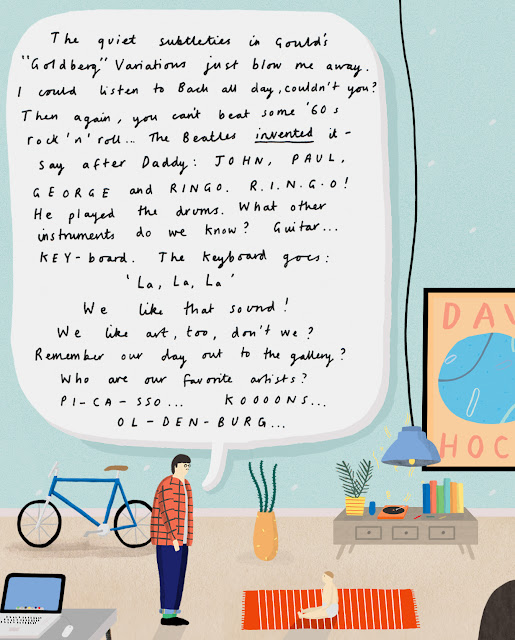 The quiet subtleties in Gould's
"Goldberg" Variations just blow me away.
I could listen to Bach all day, couldn't you?
Then again, you can't beat some '60s
rock 'n' roll... The Beatles invented it –
say after Daddy: JOHN, PAUL,
GEORGE and RINGO. R.I.N.G.O!
He played the drums. What other
instruments do we know? Guitar...
KEY-board. The keyboard goes:
'La, La, La'
We like that sound!
We like art, too, don't we?
Remember our day out to the gallery?
Who are our favorite artists?
PI-CA-SSO... KOOOONS...
OL-DEN-BURG...
DAV
HOC